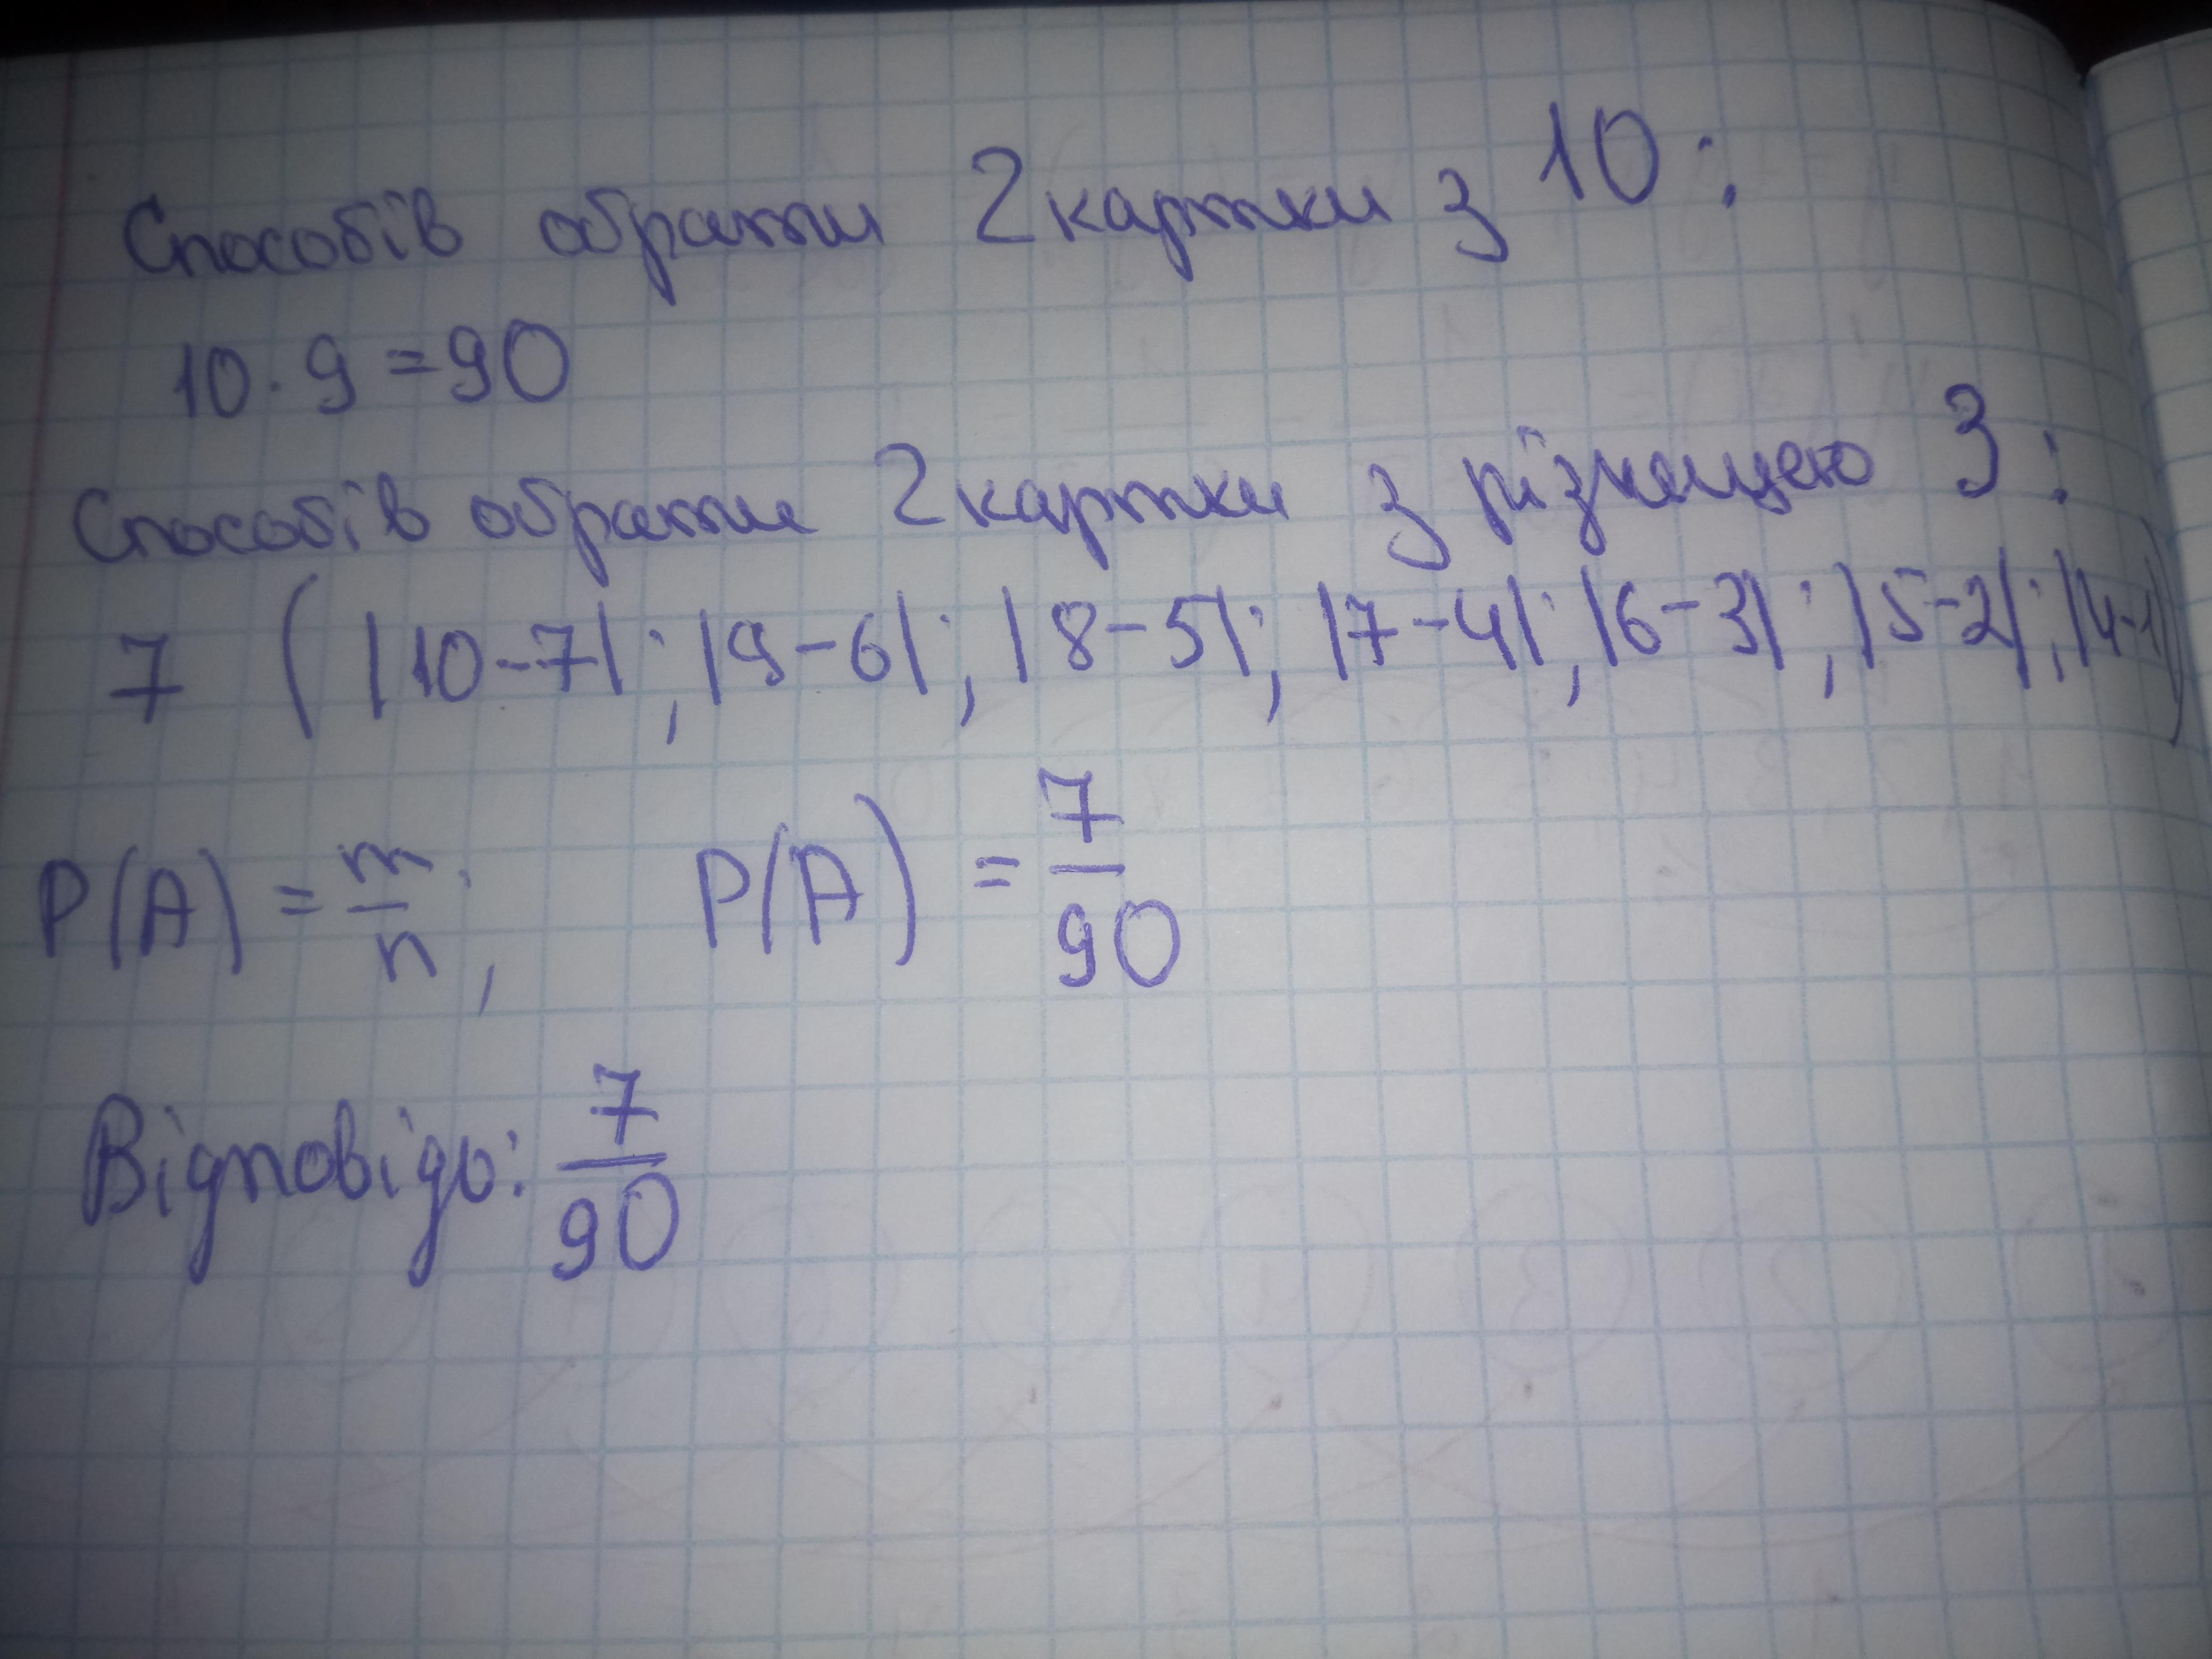 Способів обрати 2 картки з 10:
10 · 9 = 90
Способів обрати 2 картки з різницею 3:
7 ( |10-7|; |9-6|; |8-5|; |7-4|; |6-3|; |5-2|; |4-1| )
P(A) = m/n; P(A) = 7/90
Відповідь: 7/90